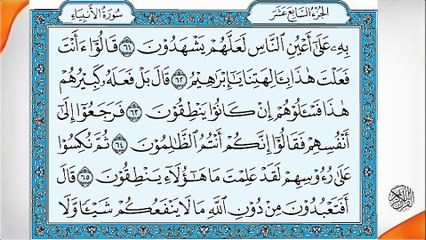 سُورَةُ الأَنبِيَاءِ
الجُزءُ السَّابِعَ عَشَرَ
بِهِۦ عَلَىٰٓ أَعۡيُنِ ٱلنَّاسِ لَعَلَّهُمۡ يَشۡهَدُونَ ٦١ قَالُوٓاْ ءَأَنتَ
فَعَلۡتَ هَٰذَا بِـَٔالِهَتِنَا يَٰٓإِبۡرَٰهِيمُ ٦٢ قَالَ بَلۡ فَعَلَهُۥ كَبِيرُهُمۡ
هَٰذَا فَسۡـَٔلُوهُمۡ إِن كَانُواْ يَنطِقُونَ ٦٣ فَرَجَعُوٓاْ إِلَىٰٓ
أَنفُسِهِمۡ فَقَالُوٓاْ إِنَّكُمۡ أَنتُمُ ٱلظَّٰلِمُونَ ٦٤ ثُمَّ نُكِسُواْ
عَلَىٰ رُءُوسِهِمۡ لَقَدۡ عَلِمۡتَ مَا هَٰٓؤُلَآءِ يَنطِقُونَ ٦٥ قَالَ
أَفَتَعۡبُدُونَ مِن دُونِ ٱللَّهِ مَا لَا يَنفَعُكُمۡ شَيۡـٔٗا وَلَا